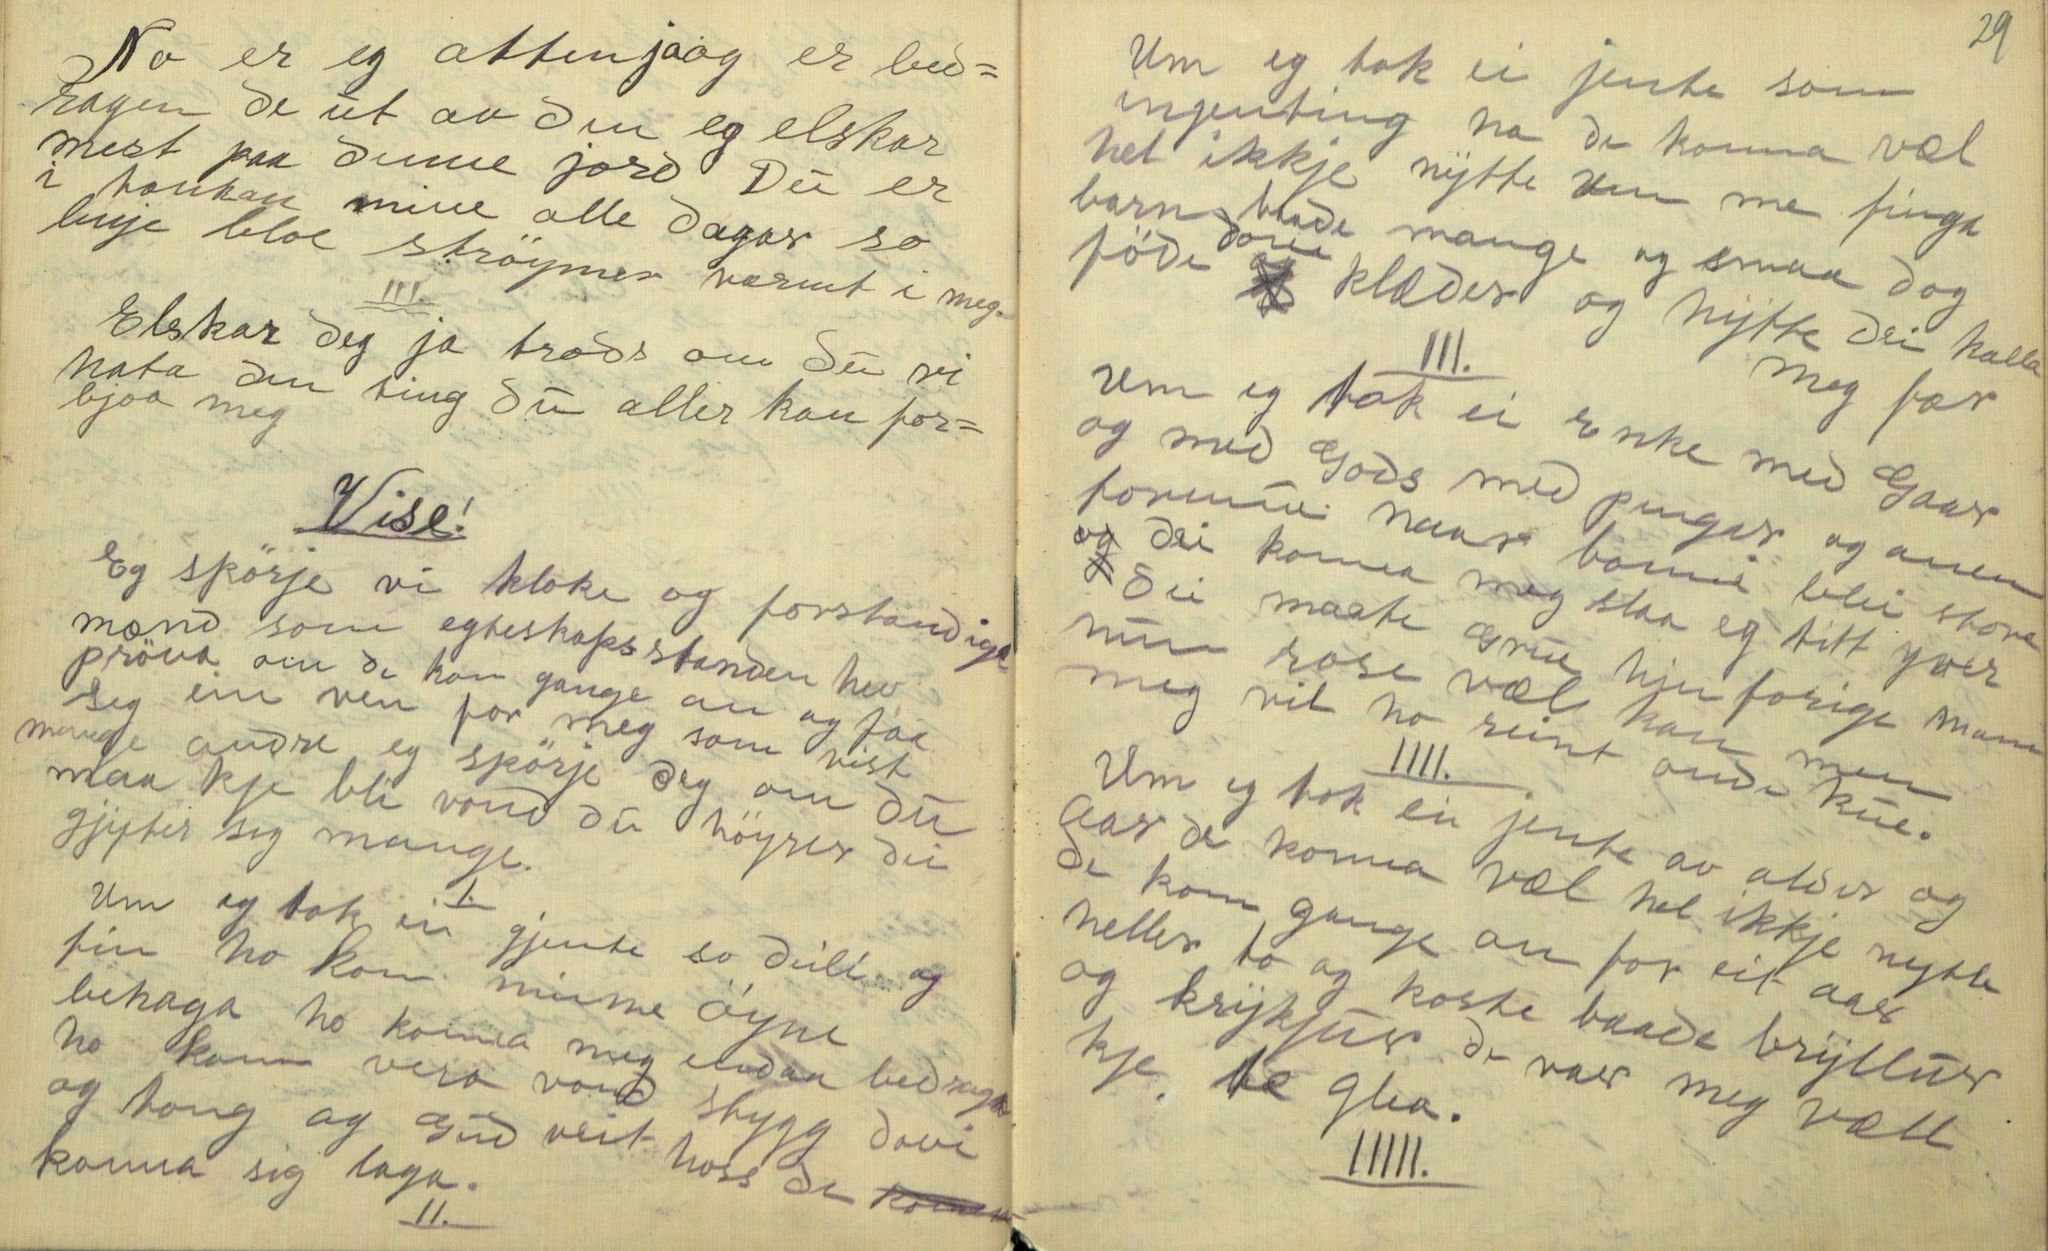 No er eg atten jaag er bed=
ragen de ut av den eg elskar
mest paa denne jord Du er
i tankan mine alle dagar so
linje bloe ströymer varmt i meg.
III.
Elskar deg ja trods om du vi
hata den ting du aller kan for=
bjoa meg
Vise!
Eg spörje vi kloke og forstandige
mænd som egteskapsstanden hev
pröva om de kan gange an og faa
seg ein ven for meg som vist
mange andre eg spörje deg om du
maa kje bli vond du höyrer dei
gjyter seg mange.
I.
Um eg tok ei gjente so deili og
fin ho kan minne öyne
behaga ho konna meg endaa bedraga
ho kann vera vond stygg dovi
og tong og Gud veit hoss de
konna sig laga.
II.
29
Um eg tok ei jente som
ingenting ha de konna væl
hel ikkje nytte um me finga
barn baade mange og smaa dog
föde dom klæder og nytte dei kalla
meg far
III.
Um eg tok ei enke med Gaar
og med Gods med pengar og anen
formue naar bonni blei store
og dei konna meg slaa eg titt yver
dei maate Gnue hjen forige mann
min rose væl kan men
meg vil ho reint onde kue.
IIII.
Um eg tok ein jente av alder og
Aar de konna væl hel ikkje nytte
de kom gange an for eit aar
heller to og koste baade bryllur
og krykjur de var meg væll
kje te glea.
IIIII.